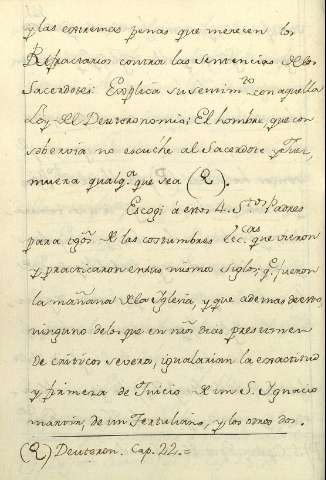 y las extremas penas que merecen los
Refractarios contra las sentencias de los
Sacerdotes: Explica su sentim.to con aquella
Ley del Deuteronomio: El hombre, que con
sobervia no escuche al Sacerdote y Juez,
muera qualq.a que sea (Q).
Escogi á estos 4. S.tos Padres
para tgos. de las costumbres Ecc.cas que vieron
y practicaron en su mismo siglo; q.e fueron
la mañana de la Iglesia, y que ademas de esto
ninguno de los que en nros dias presumen
de criticos severos, igualarian la exactitud
y firmeza de Juicio de un S. Ignacio
martir, de un Tertuliano, y los otros dos.
(Q) Deuteron. Cap. 22.=